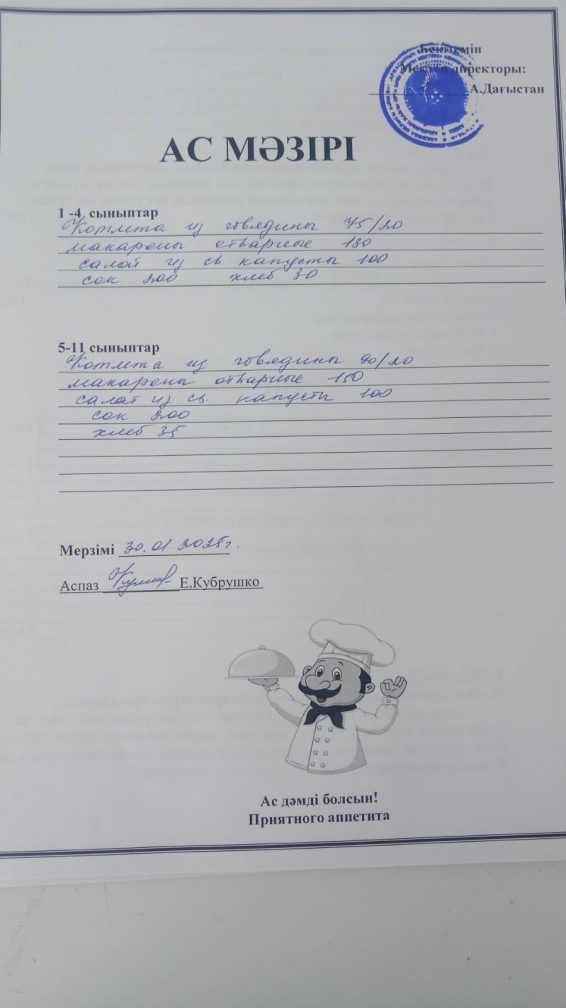 Бекітемін
Мектеп директоры:
А.Дағыстан
АС МӘЗІРІ
1 -4 сыныптар
Котлета из говядины 75/20
макароны отварные 130
салат из св капусты 100
сок 200 хлеб 30
5-11 сыныптар
Котлета из говядины 90/20
макароны отварные 150
салат из св. капусты 100
сок 200
хлеб 35
Мерзімі 30.01.2025г.
Аспаз Е.Кубрушко
Ас дәмді болсын!
Приятного аппетита